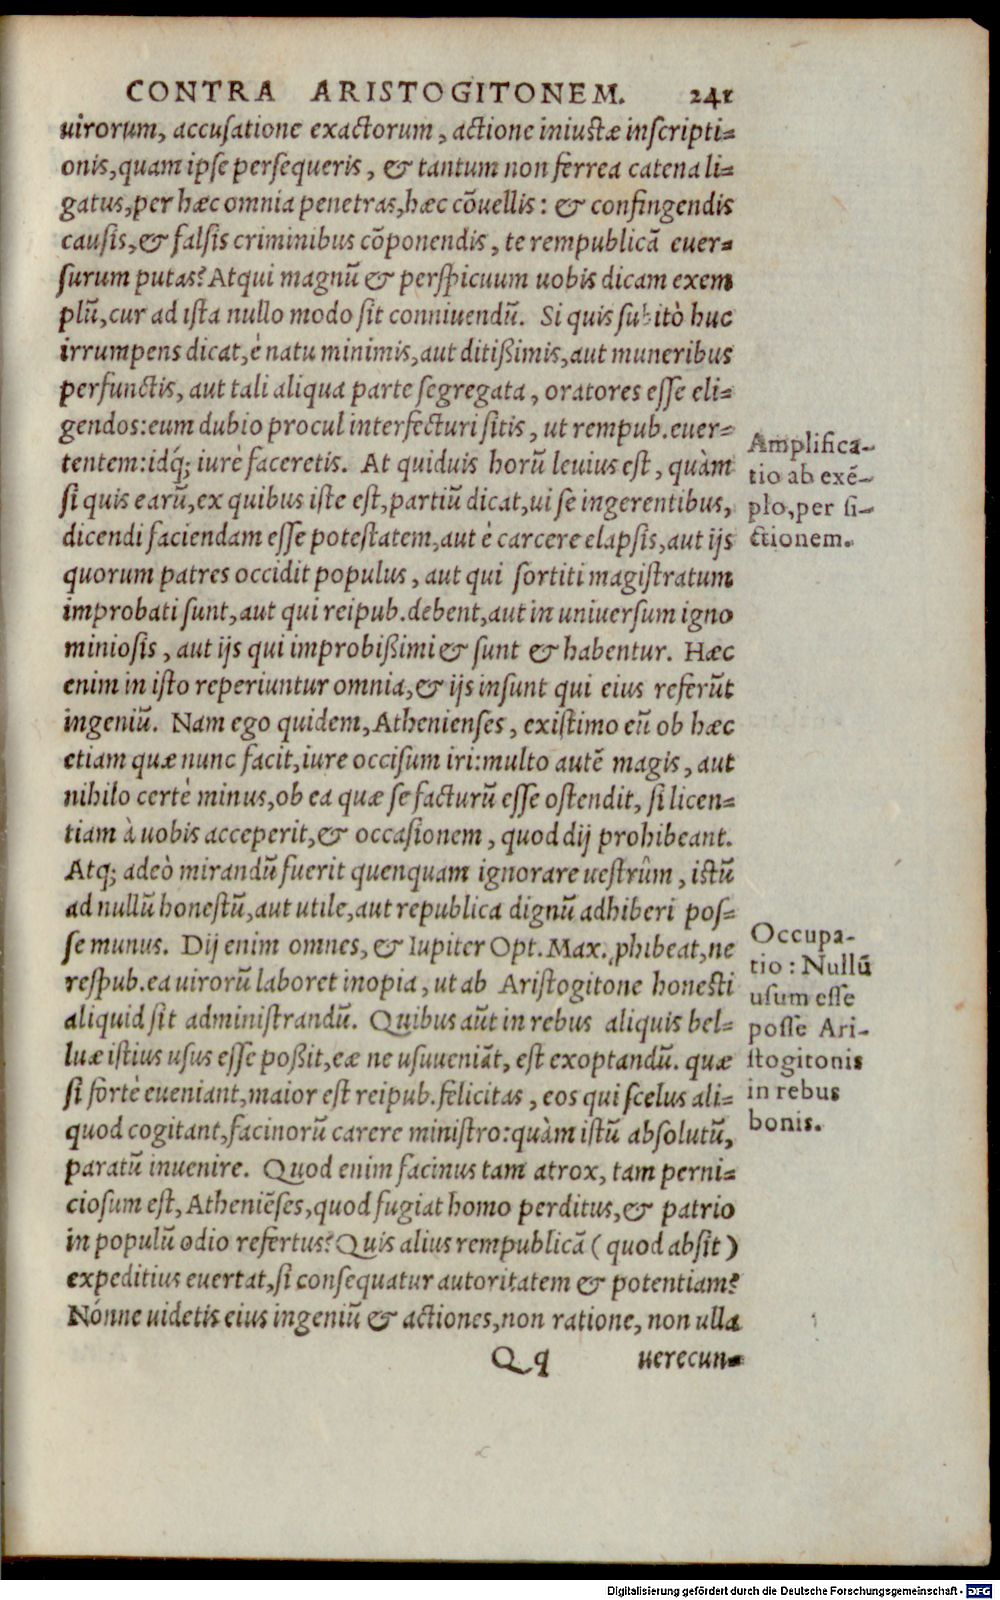 CONTRA ARISTOGITONEM. 241
uirorum, accusatione exactorum, actione iniustæ inscripti⸗
onis, quam ipse persequeris, & tantum non ferrea catena li⸗
gatus, per hæc omnia penetras, hæc cōuellis: & confingendis
causis, & falsis criminibus cōponendis, te rempublicā euer⸗
surum putas? Atqui magnū & perspicuum uobis dicam exem
plū, cur ad ista nullo modo sit conniuendū. Si quis subitò huc
irrumpens dicat, è natu minimis, aut ditißimis, aut muneribus
perfunctis, aut tali aliqua parte segregata, oratores esse eli⸗
gendos: eum dubio procul interfecturi sitis, ut rempub. euer⸗
tentem: idq́; iurè faceretis. At quiduis horū leuius est, quàm
si quis earū, ex quibus iste est, partiū dicat, ui se ingerentibus,
dicendi faciendam esse potestatem, aut è carcere elapsis, aut ijs
quorum patres occidit populus, aut qui sortiti magistratum
improbati sunt, aut qui reipub. debent, aut in uniuersum igno
miniosis, aut ijs qui improbißimi & sunt & habentur. Hæc
enim in isto reperiuntur omnia, & ijs insunt qui eius referūt
ingeniū. Nam ego quidem, Athenienses, existimo eū ob hæc
etiam quæ nunc facit, iure occisum iri: multo autē magis, aut
nihilo certè minus, ob ea quæ se facturū esse ostendit, si licen⸗
tiam à uobis acceperit, & occasionem, quod dij prohibeant.
Atq; adeò mirandū fuerit quenquam ignorare uestrûm, istū
ad nullū honestū, aut utile, aut republica dignū adhiberi pos⸗
se munus. Dij enim omnes, & Iupiter Opt. Max. ꝓhibeat, ne
respub. ea uirorū laboret inopia, ut ab Aristogitone honesti
aliquid sit administrandū. Quibus aūt in rebus aliquis bel⸗
luæ istius usus esse poßit, eæ ne usuueniāt, est exoptandū. quæ
si fortè eueniant, maior est reipub. felicitas, eos qui scelus ali⸗
quod cogitant, facinorū carere ministro: quàm istū absolutū,
paratū inuenire. Quod enim facinus tam atrox, tam perni⸗
ciosum est, Atheniēses, quod fugiat homo perditus, & patrio
in populū odio refertus? Quis alius rempublicā (quod absit)
expeditius euertat, si consequatur autoritatem & potentiam?
Nónne uidetis eius ingeniū & actiones, non ratione, non ulla
Qq uerecun⸗
Amplifica-
tio ab exē-
plo, per fi-
ctionem.
Occupa-
tio: Nullū
usum esse
posse Ari-
stogitonis
in rebus
bonis.
Digitalisierung gefördert durch die Deutsche Forschungsgemeinschaft - DFG